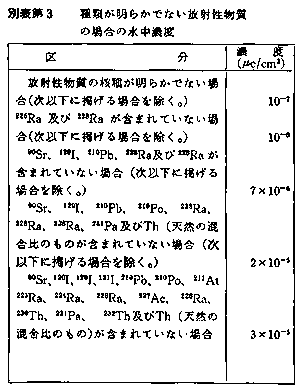 別表第3 種類が明らかでない放射性物質
の場合の水中濃度
区 分
濃 度
(μc/cm³)
放射性物質の核種が明らかでない場
合(次以下に掲げる場合を除く。)
10⁻⁷
²²⁶Ra 及び ²²⁸Ra が含まれていない場
合(次以下に掲げる場合を除く。)
⁹⁰Sr、¹²⁹I、²¹⁰Pb、²²⁶Ra及び²²⁸Ra が
含まれていない場合 (次以下に掲げる
場合を除く。)
⁹⁰Sr、 ¹²⁹I、 ²¹⁰Pb、 ²¹⁰Po、 ²²³Ra、
²²⁶Ra、²²⁸Ra、²³¹Pa及びTh (天然の混
合比のものが含まれていない場合 (次
以下に掲げる場合を除く。)
2×10⁻⁵
²²³Ra、²²⁴Ra、²²⁶Ra、²²⁷Ac、²²⁸Ra、
²³⁰Th、²³¹Pa、 ²³²Th及びTh (天然の
混合比のもの)が含まれていない場合
3×10⁻⁵